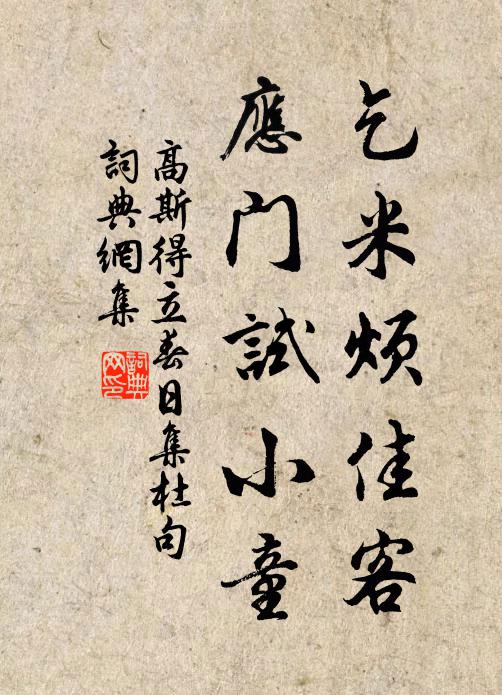 乞米煩佳客
應門試小童
高斯得立春日集杜句
詞典網集
詞典
网印